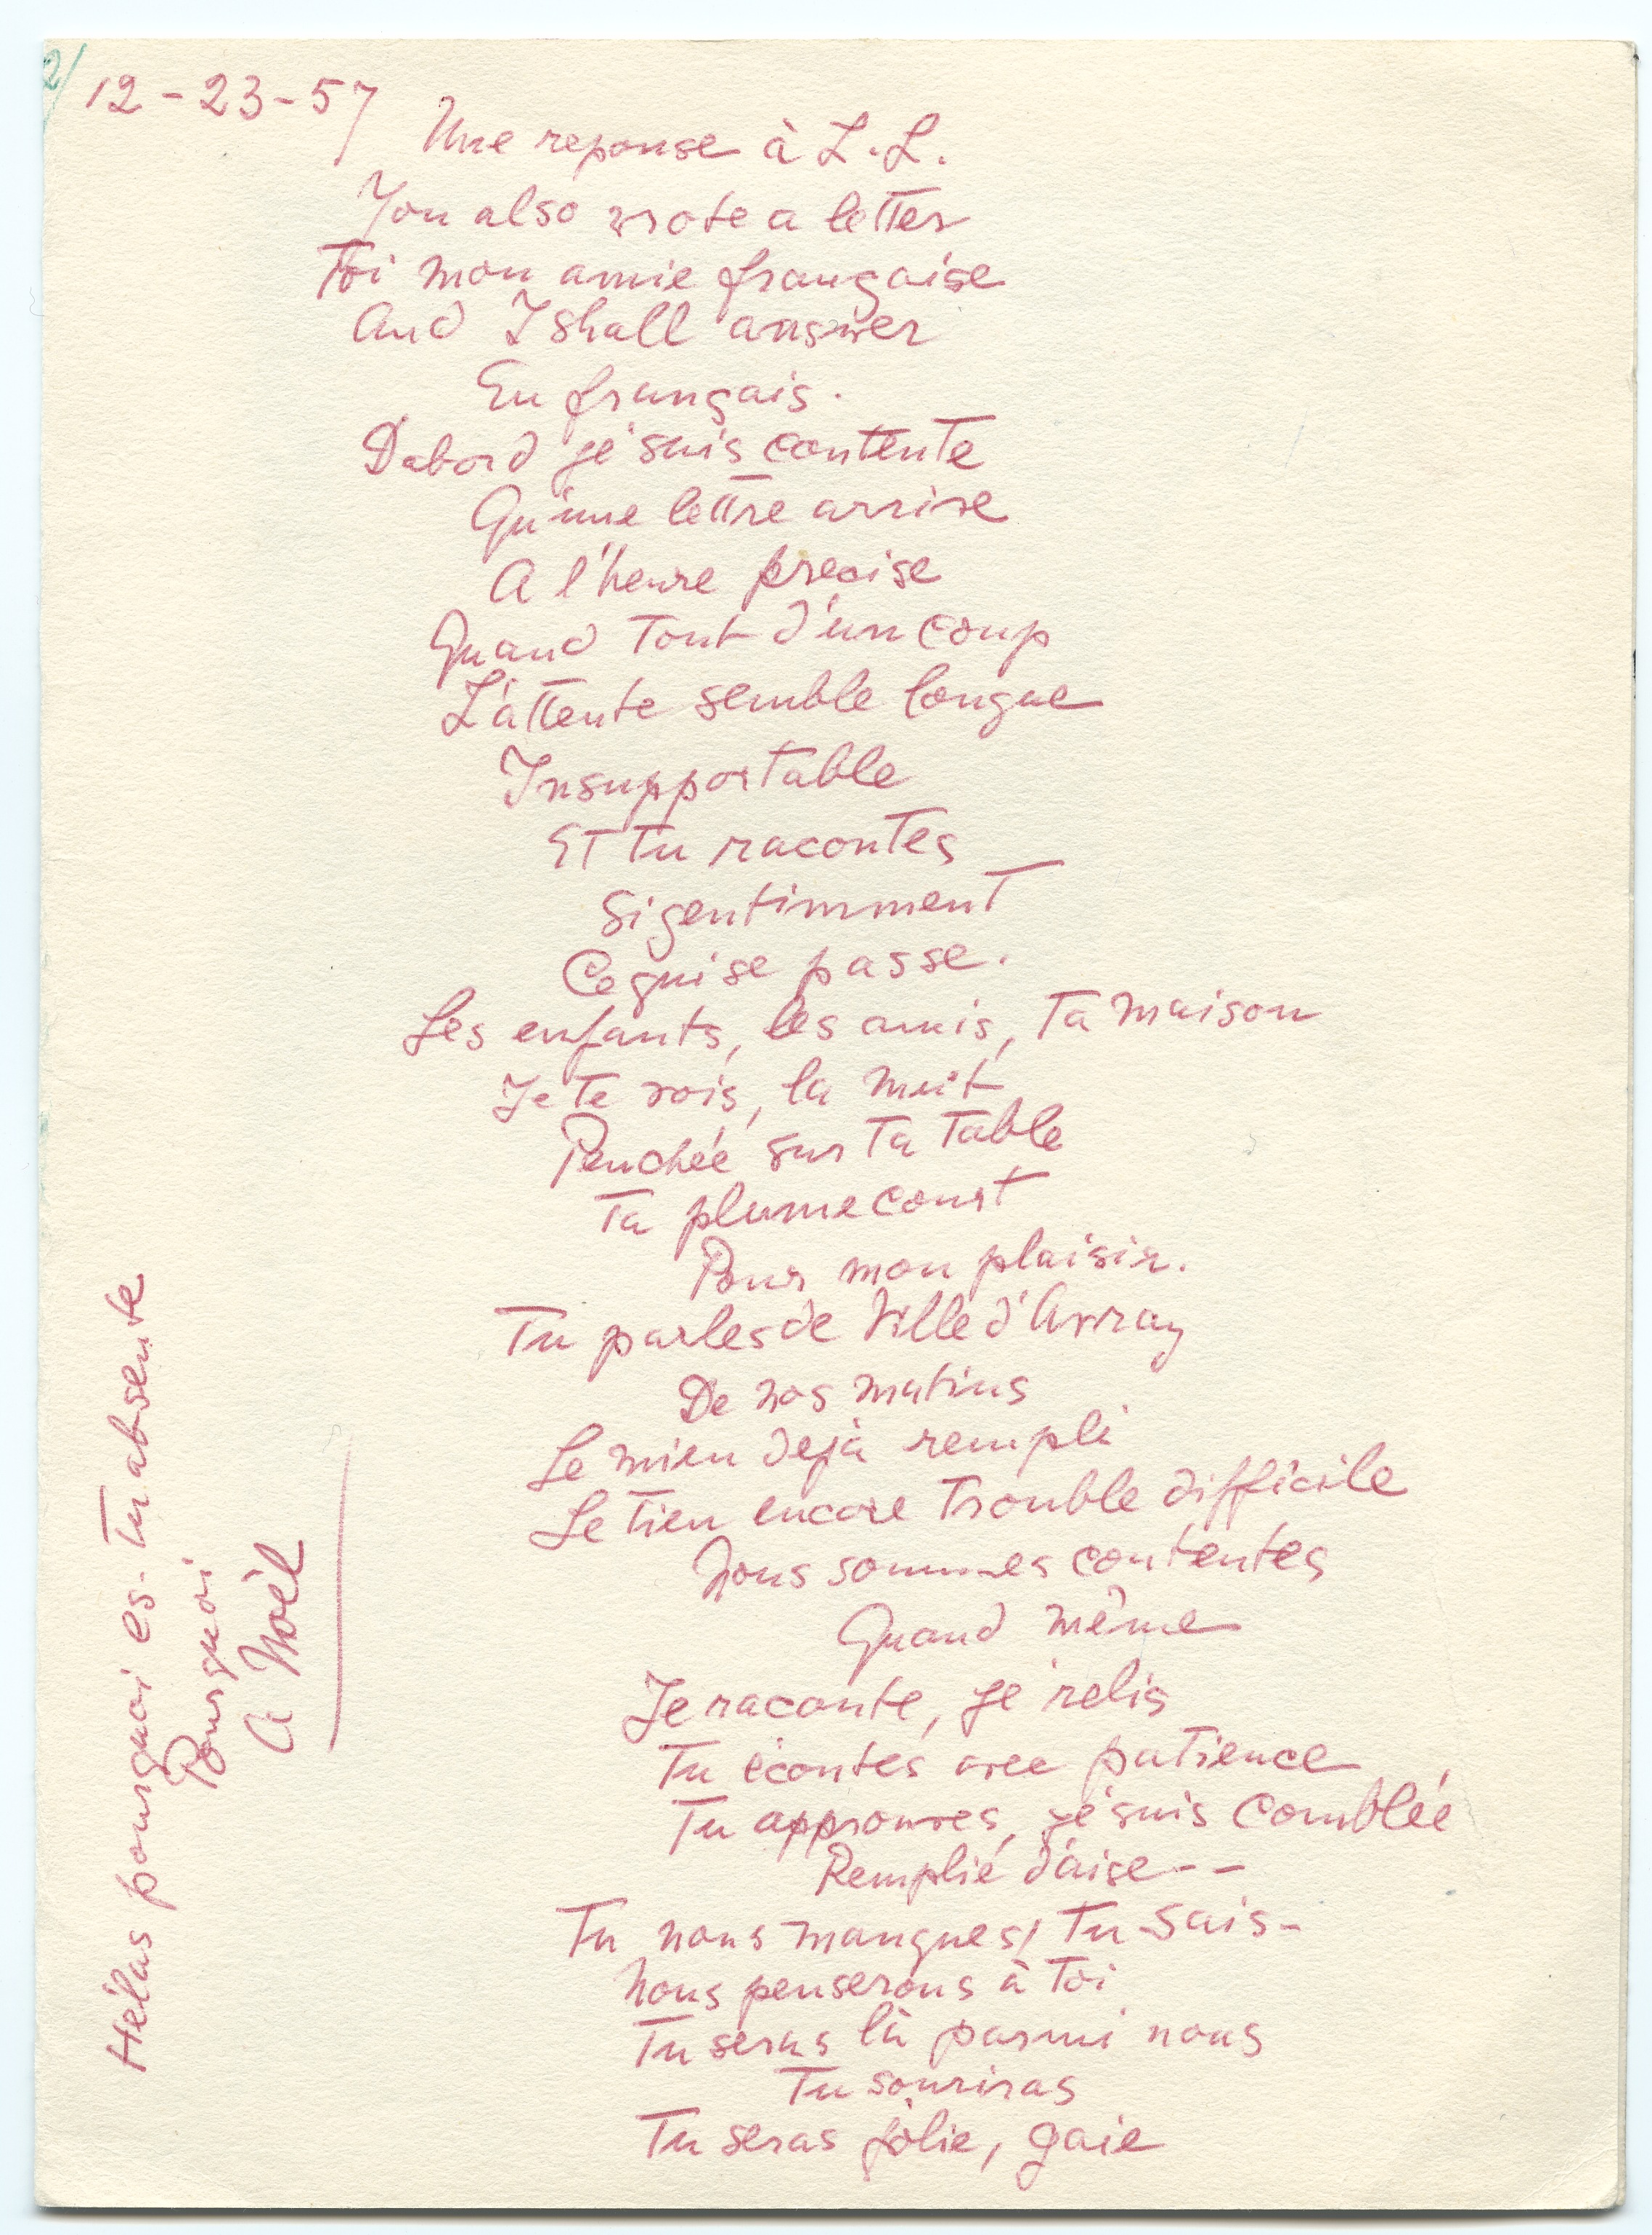 2/
12-23-57
Une reponse à L.L.
You also wrote a letter
Toi mon amie française
And I shall answer
En français.
Dabord je suis contente
Qu'une lettre arrive
A l'heure precise
Quand tout d'un coup
L'attente semble longue
Insupportable
Et tu racontes
Si gentimment
Ce qui se passe.
Les enfants, les amis, ta maison
Je te vois, la nuit
Penchée sur ta table
Ta plume court
Pour mon plaisir.
Tu parles de Ville d'Avray
De nos matins
Le mien dejà rempli
Le tien encore trouble difficile
Nous sommes contentes
Quand même
Je raconte, je relis
Tu écoutes avec patience
Tu approuves, je suis comblée
Remplie d'aise--
Tu nous manques, tu sais-
Nous penserons à toi
Tu seras là parmi nous
Tu souriras
Tu seras jolie, gaie
Hélas pourquoi es-tu absente
Pourquoi
A Noël